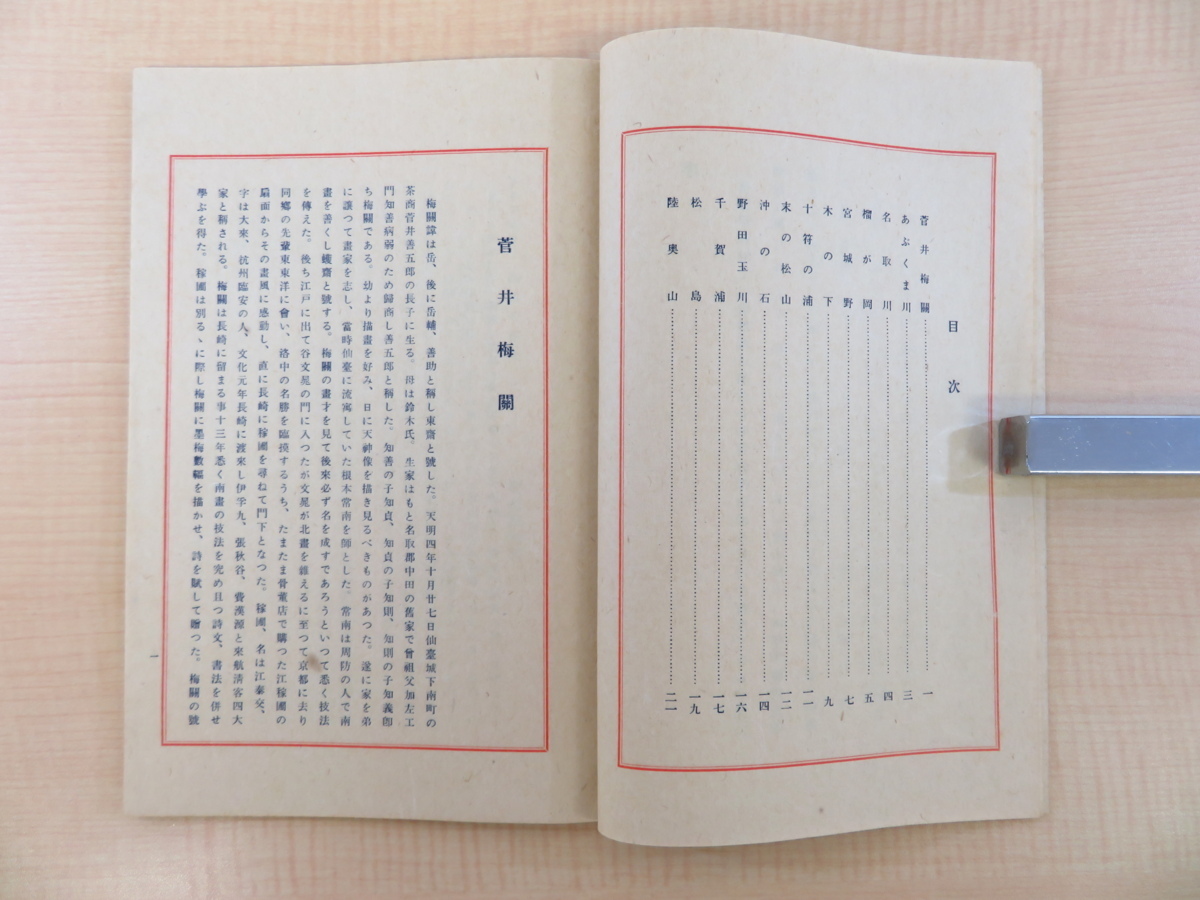 目次
菅井梅關……一
あぶくま川……三
名取川……四
榴が岡……五
宮城野……七
木の下……九
十符の浦……一一
末の松山……一二
沖の石……一四
野田玉川……一六
千賀浦……一七
松島……一九
陸奥山……二一
菅井梅關
梅關諱は岳、後に岳輔、善助と稱し東齋と號した。天明四年十月廿七日仙臺城下南町の
茶商菅井善五郎の長子に生る。母は鈴木氏。生家はもと名取郡中田の舊家で曾祖父加左工
門知善病弱のため歸商し善五郎と稱した。知善の子知貞、知貞の子知則、知則の子知義卽
ち梅關である。幼より描畫を好み、日に天神像を描き見るべきものがあつた。遂に家を弟
に讓つて畫家を志し、當時仙臺に流寓していた根本常南を師とした。常南は周防の人で南
畫を善くし齋と號する。梅關の畫才を見て後來必ず名を成すであろうといつて悉く技法
を傳えた。後ち江戸に出て谷文晁の門に入つたが文晁が北畫を雜えるに至つて京都に去り
同鄕の先輩東東洋に會い、洛中の名勝を臨摸するうち、たまたま骨董店で購つた江稼圃の
扇面からその畫風に感動し、直に長崎に稼圃を尋ねて門下となつた。稼圃、名は江泰交、
字は大來、杭州臨安の人、文化元年長崎に渡來し伊孚九、張秋谷、費漢源と來航淸客四大
家と稱される。梅關は長崎に留まる事十三年悉く南畫の技法を究め且つ詩文、書法を併せ
學ぶを得た。稼圃は別るゝに際し梅關に墨梅數幅を描かせ、詩を賦して贈つた。梅關の號
一